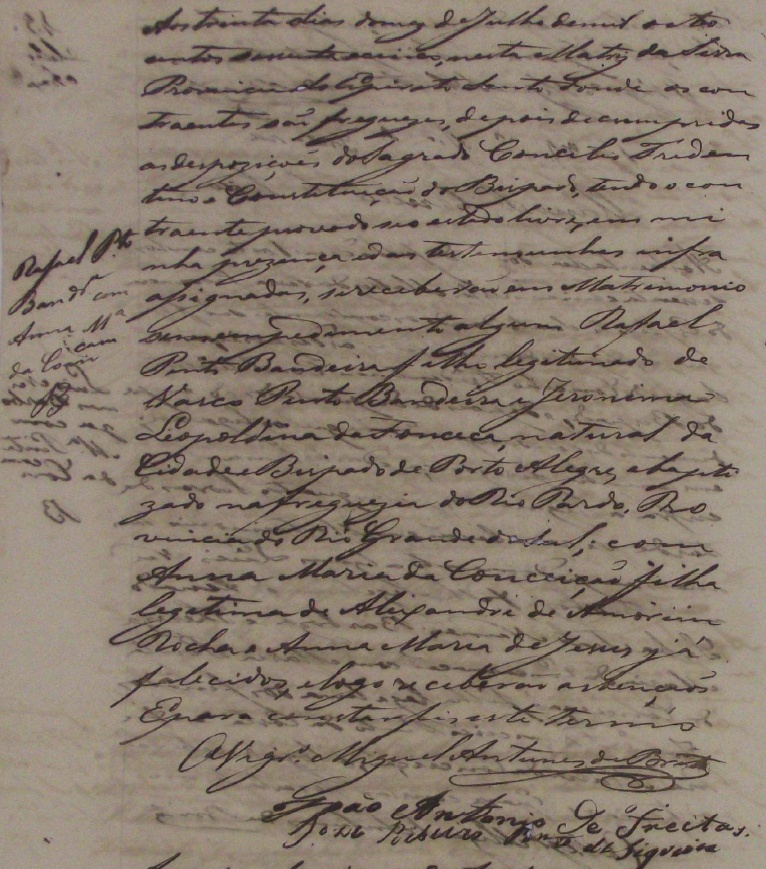 Rafael Pto
Bandra com
Anna Ma
da Conicam
Aos trinta dias do mez de Julho de mil e oito
centos secenta e cinco, nesta Matriz da Serra
Provincia do Espirito Santo donde os con
traentes são freguezes, depois de cumpridas
as despoziçoes do Sagrado Concilio Triden
tino e Constituição do Bispado, tendo o con
traente provado seo estado livre, em mi
nha prezença, e das testemunhas infra
assignadas, se receberão em Matrimonio
sem empedimento algum Rafael
Pinto Bandeira filho legitimado de
Vasco Pinto Bandeira e Jeronima
Leopoldina da Fonceca, natural da
Cidade e Bispado de Porto Alegre, e bapti
zado na freguezia do Rio Pardo, Pro
vincia do Rio Grande do Sul; com
Anna Maria da Conceição filha
legitima de Alixandre de Amorim
Rocha e Anna Maria de Jesus já
falecidos, e logo receberão as bençoes
E para constar fis este termo
O Vigro. Miguel Antunes de Brito
João Antonio de Freitas.
José Ribeiro de Siqueira